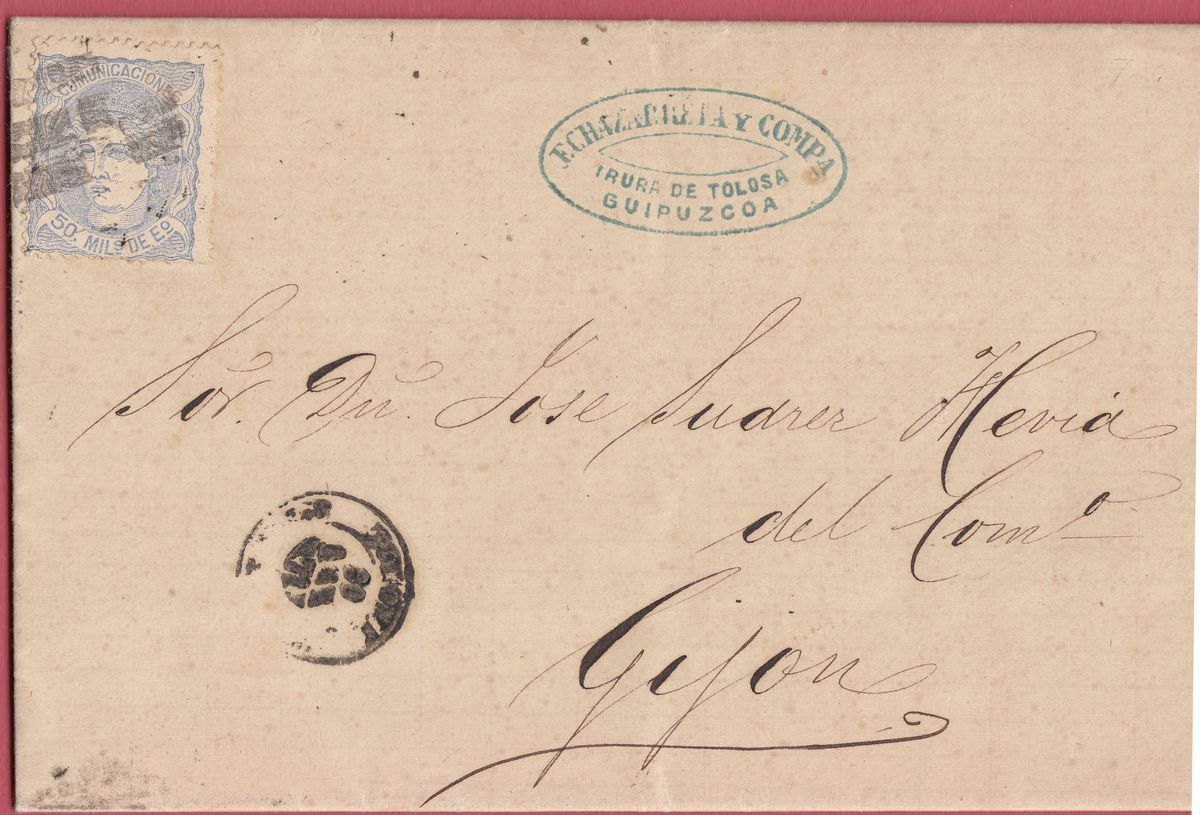 COMUNICACIONES
50. MILS DE EO
ECHAZARRETA Y COMPA
IRURA DE TOLOSA
GUIPUZCOA
Sor. Dn. Jose Suarez Hevia
del Como
Gijon